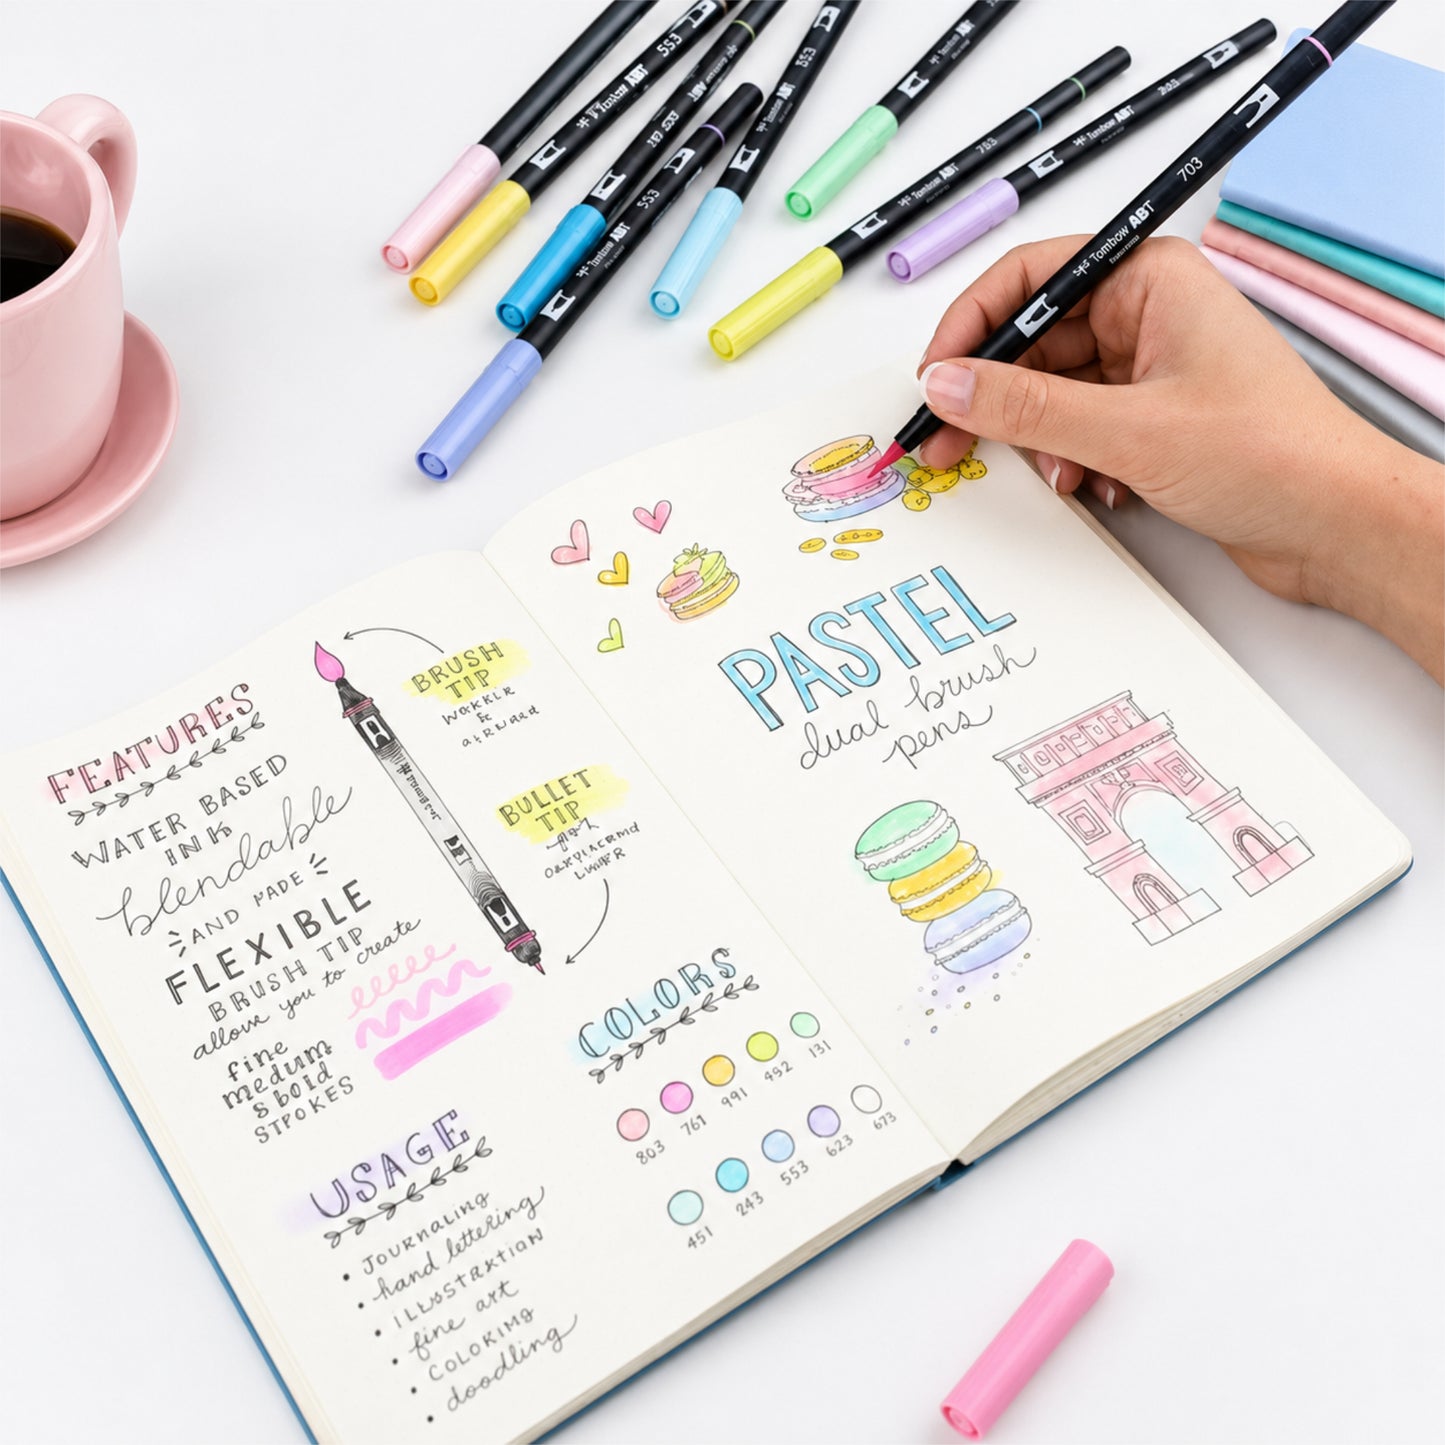 553
Tombow ABT
553
Tombow ABT
Tombow ABT
753
Tombow ABT
Tombow ABT
703
Tombow ABT
FEATURES
WATER BASED
INK
blendable
AND MADE
FLEXIBLE
BRUSH TIP
allow you to create
fine
medum
& bold
STROKES
USAGE
• JOURNALING
• hand lettering
• ILLUSTRATION
• fine art
• COLORING
• doodling
BRUSH
TIP
BULLET
TIP
COLORS
803
761
991
492
131
451
243
553
623
673
PASTEL
dual brush
pens